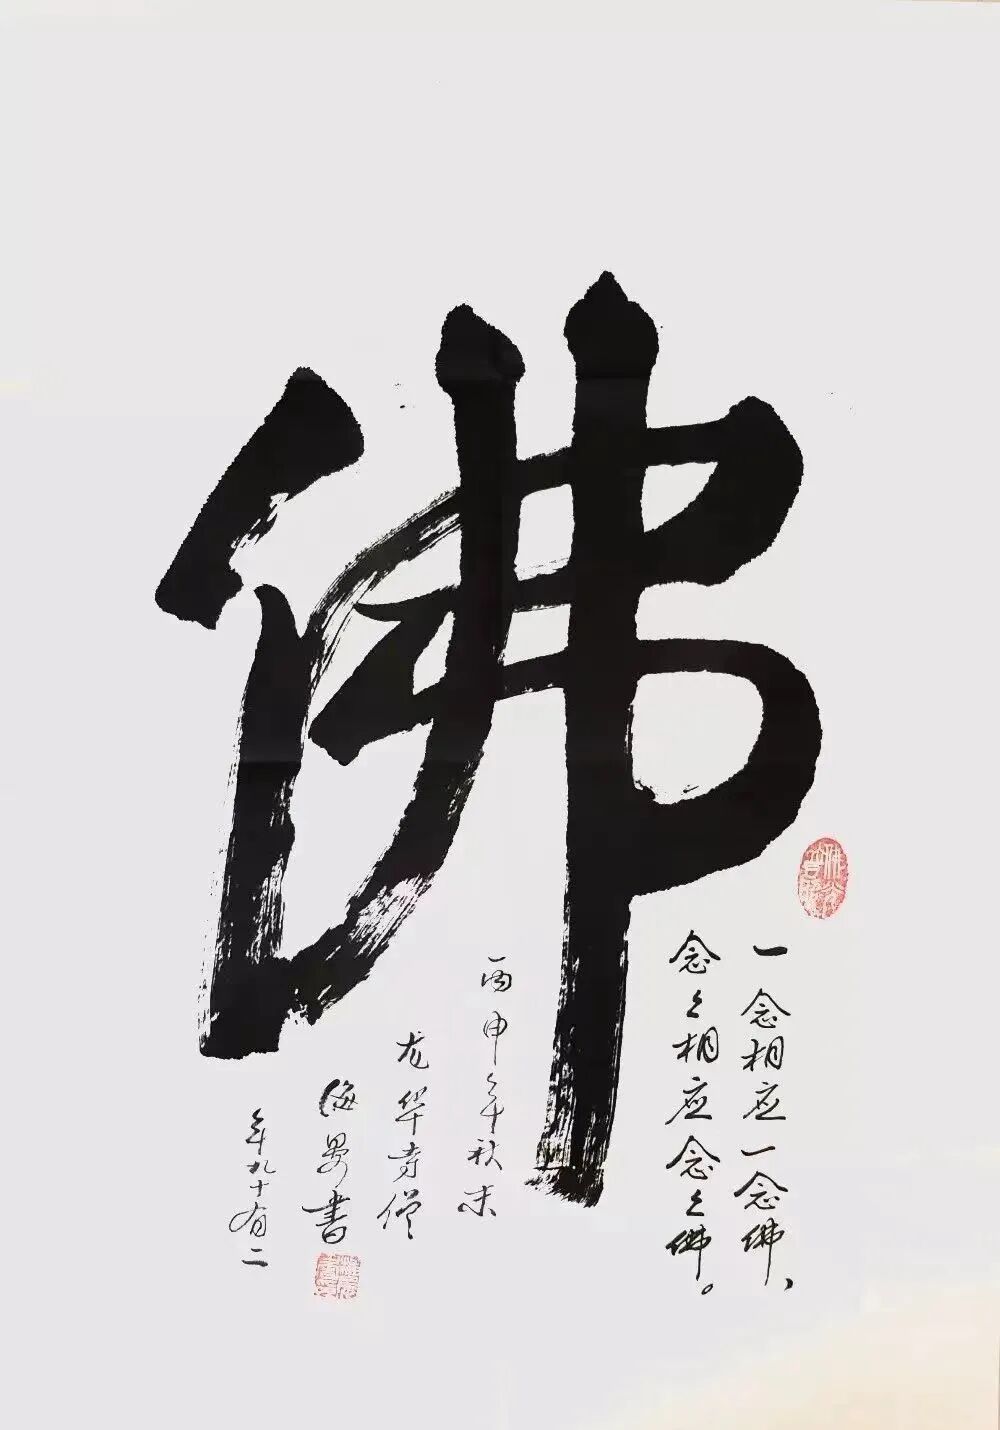 佛
一念相应一念佛、
念念相应念念佛。
丙申年秋末
龙华寺僧
海岩書
年九十有二